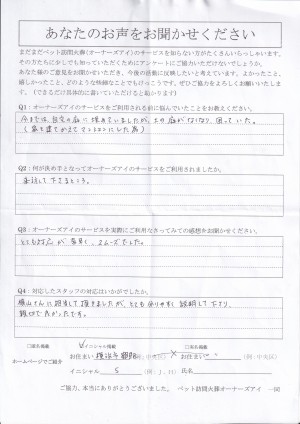 あなたのお声をお聞かせください
まだまだペット訪問火葬(オーナーズアイ)のサービスを知らない方がたくさんいらっしゃいます。
その方たちに少しでも知っていただくためにアンケートにご協力いただけないでしょうか。
あなた様のご意見をお聞かせいただき、今後の活動に反映したいと考えています。よかったこと、
嬉しかったこと、どのような些細なことでもけっこうです。ぜひご協力をよろしくお願いします。
(できるだけ具体的に書いていただけると助かります)
Q1:オーナーズアイのサービスをご利用される前に悩んでいたことをお教えください。
今までは、自宅の庭に埋めていましたが、その庭がなくなり、困っていた。
(家を建てかえてマンションにした為)
Q2:何が決め手となってオーナーズアイのサービスをご利用されましたか。
来訪して下さるところ。
Q3:オーナーズアイのサービスを実際にご利用なさってみての感想をお聞かせください。
とても対応が素早く、スムーズでした。
Q4:対応したスタッフの対応はいかがでしたか。
さんに担当して頂きましたが、とても分りやすく説明して下さり、
親切で良かったです。
□匿名掲載
イニシャル掲載
□実名掲載
ホームページでご紹介
お住まい 横浜市
(例:中央区)
お住まい
(例:中央区)
イニシャル S (例:J.H)
氏名
ご協力、本当にありがとうございました。 ペット訪問火葬オーナーズアイ 一同